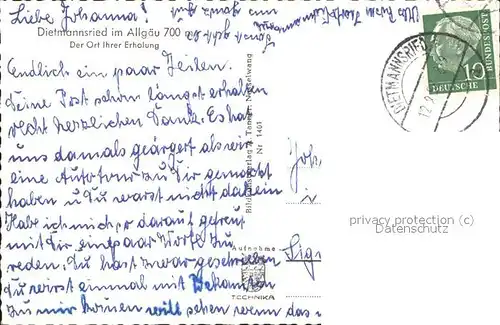 Liebe Johanna!
Dietmannsried im Allgäu 700 m
Der Ort Ihrer Erholung
Endlich ein paar Zeilen.
Deine Post schon längst erhalten
recht herzlichen Dank. Es hat
uns damals geärgert als wir
eine Autotour zu Dir gemacht
haben u. Du warst nicht daheim
Habe ich mich so darauf gefreut
mit Dir ein paar Worte zu
reden. Du hast zwar geschrieben
Du wirst einmal mit Bekannten
zu mir kommen will sehen wenn das
Nesselwang
Nr. 1401
Aufnahme
TECHNIKA
DIETMANNSRIED
12.9
10
DEUTSCHE
BUNDESPOST
privacy protection (c)
Datenschutz